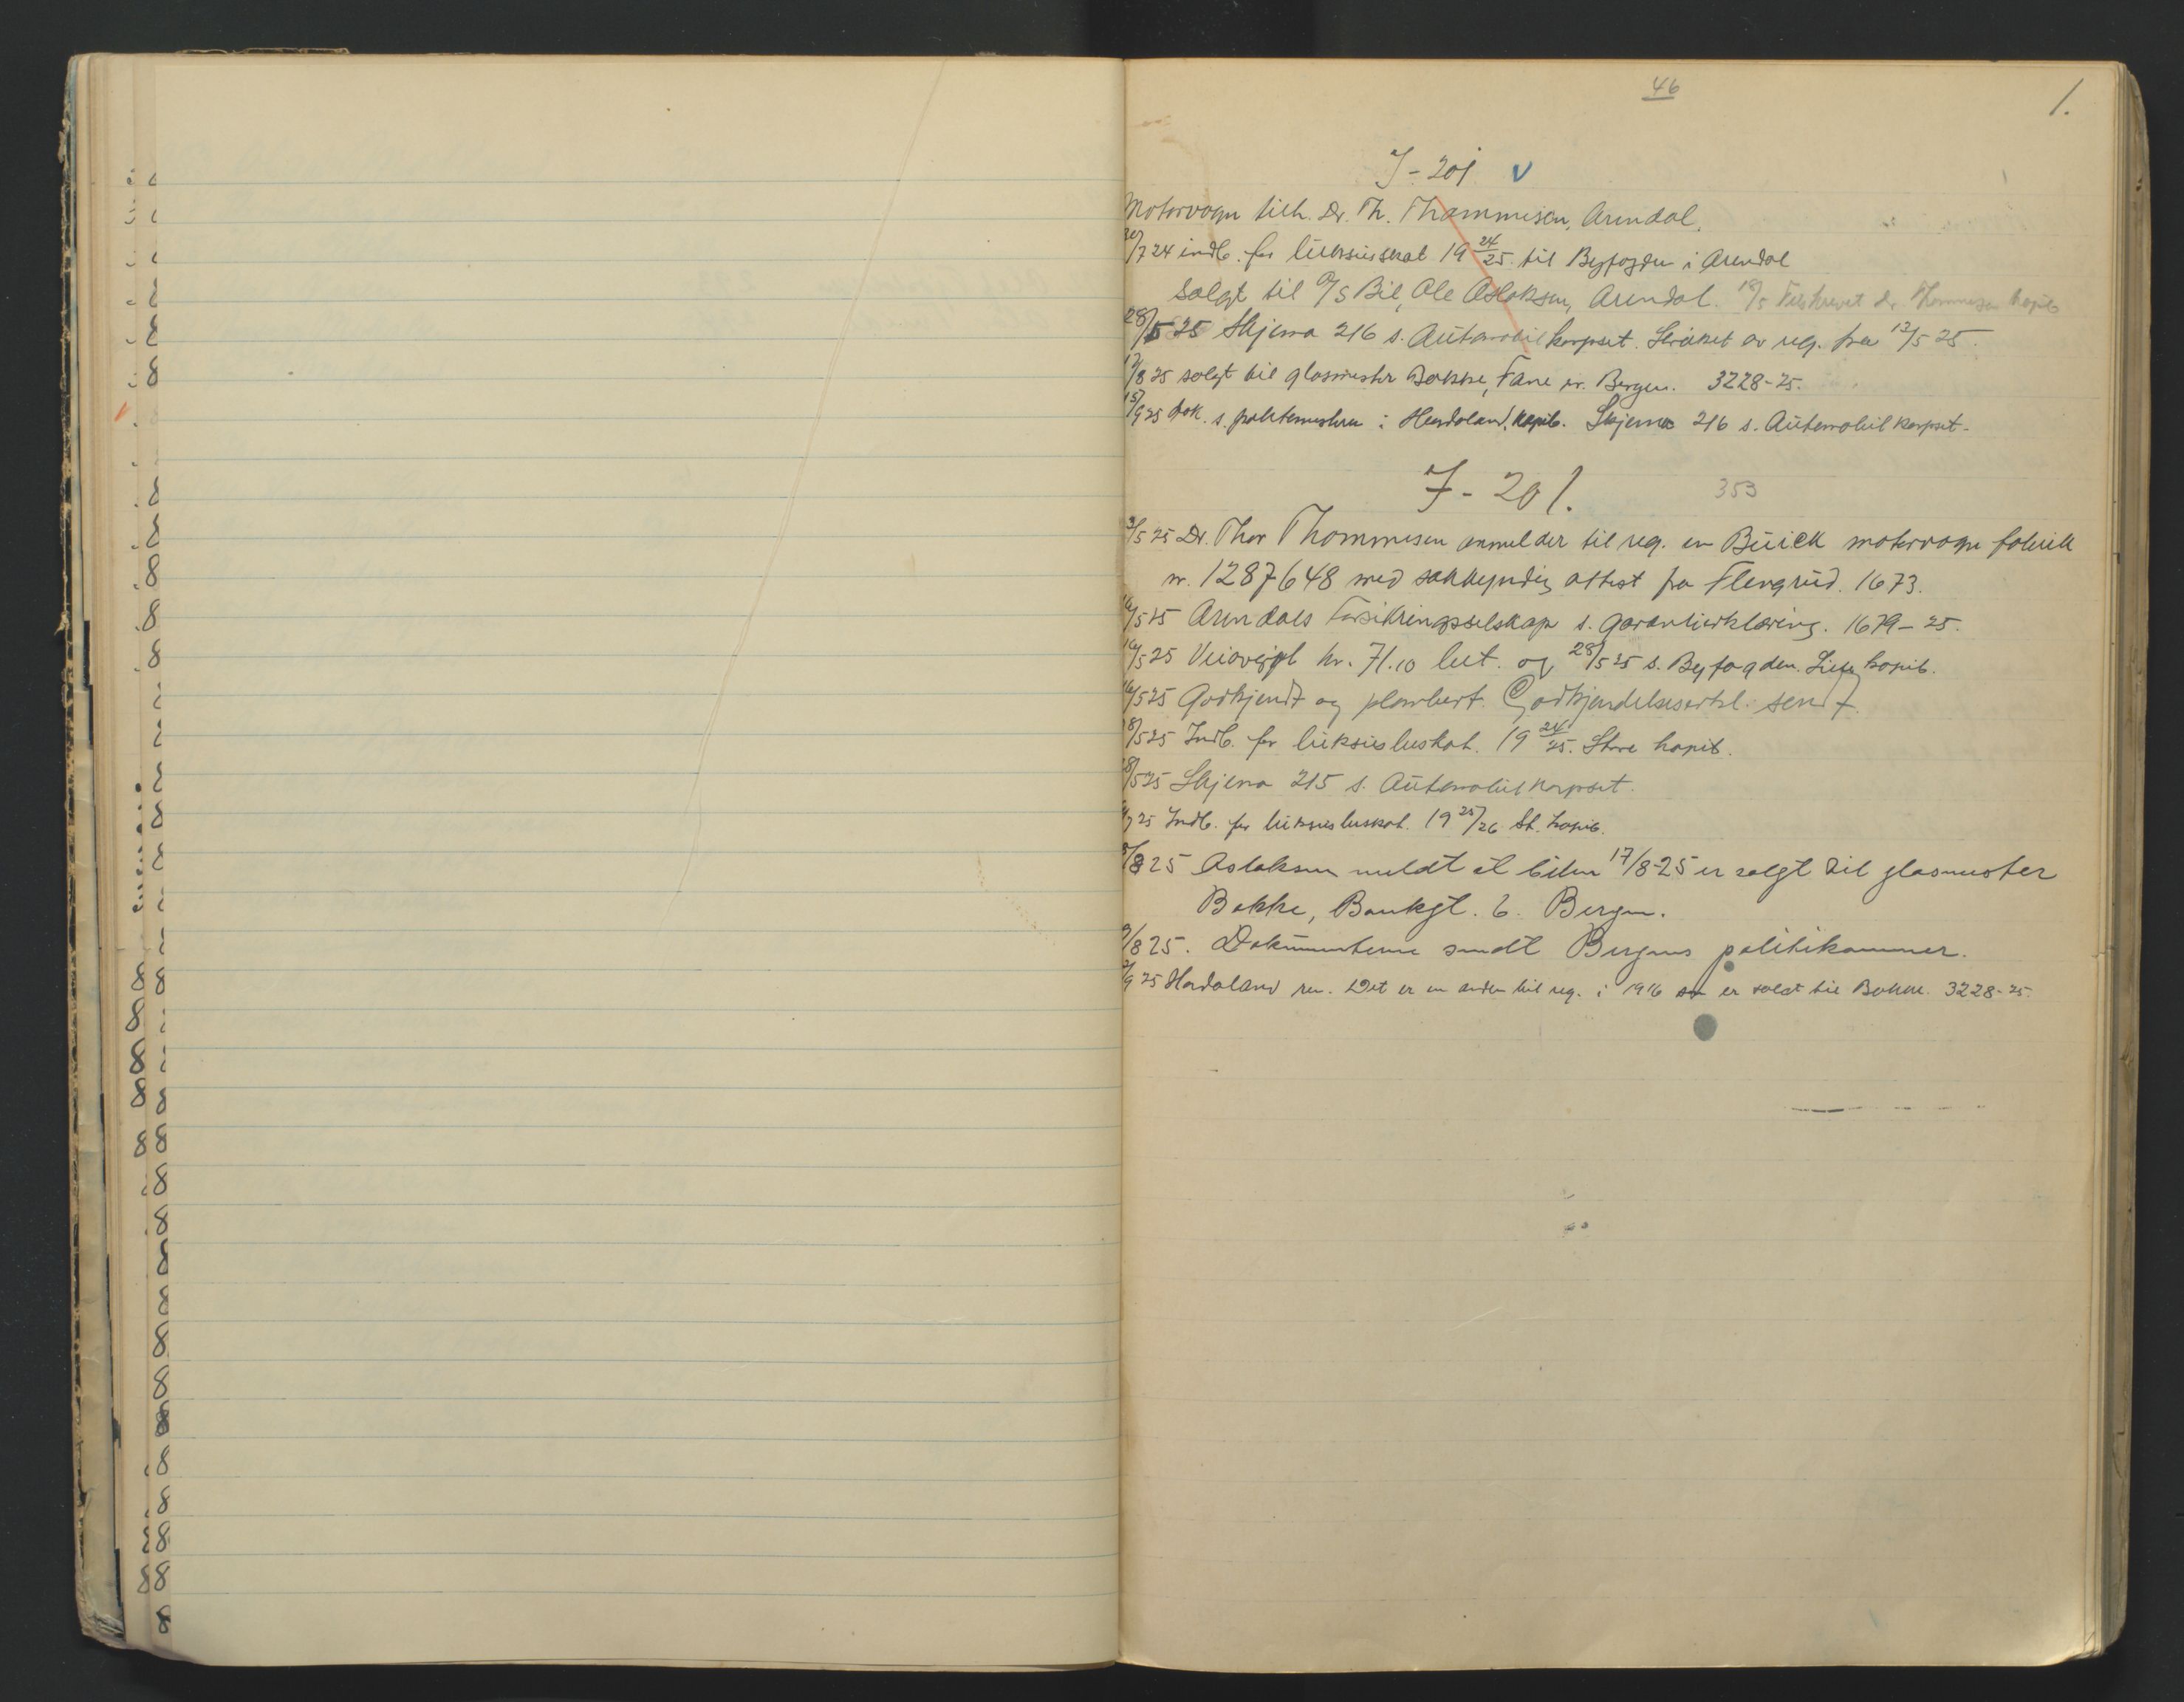 46
1.
I-201 v
Motorvogn tilh. Dr. Th. Thommesen, Arendal.
/7 24 indb. for luksusskat 19 24/25 til Byfogden i Arendal
Solgt til A/S Bil, Ole Aslaksen, Arendal. 18/5 Tilskrevet dr. Thommesen kopib
28/5 25 Skjema 216 s. Automobilkorpset. Strøket av reg. fra 12/5 25.
17/8 25 solgt til glasmester Bakke, Fane pr. Bergen. 3228-25.
15/9 25 dok. s. politimesteren i Hordaland, kopib. Skjema 216 s. Automobilkorpset.
I-201. 353
/5 25 Dr. Thor Thommesen anmelder til reg. en Buick motorvogn fabrik
nr. 1287648 med sakkyndig attest fra Flengrud. 1673.
16/5 25 Arendals Forsikringsselskap s. garantierklæring. 1679-25.
16/5 25 Veiavgift kr. 71.10 bet. og 28/5 25 s. Byfogden. kopib.
16/5 25 Godkjendt og plombert. Godkjendelseserkl. sendt.
28/5 25 Indb. for luksusbeskat. 19 24/25. Store kopib.
28/5 25 Skjema 215 s. Automobilkorpset.
/7 25 Indb. for luksusbeskat. 19 25/26 St. kopib.
/8 25 Aslaksen meldt at bilen 17/8-25 er solgt til glasmester
Bakke, Bankgt. 6. Bergen.
/8 25. Dokumenterne sendt Bergens politikammer.
/9 25 Hordaland ren. Det er en anden bil reg. i 1916 som er solgt til Bakke. 3228-25.